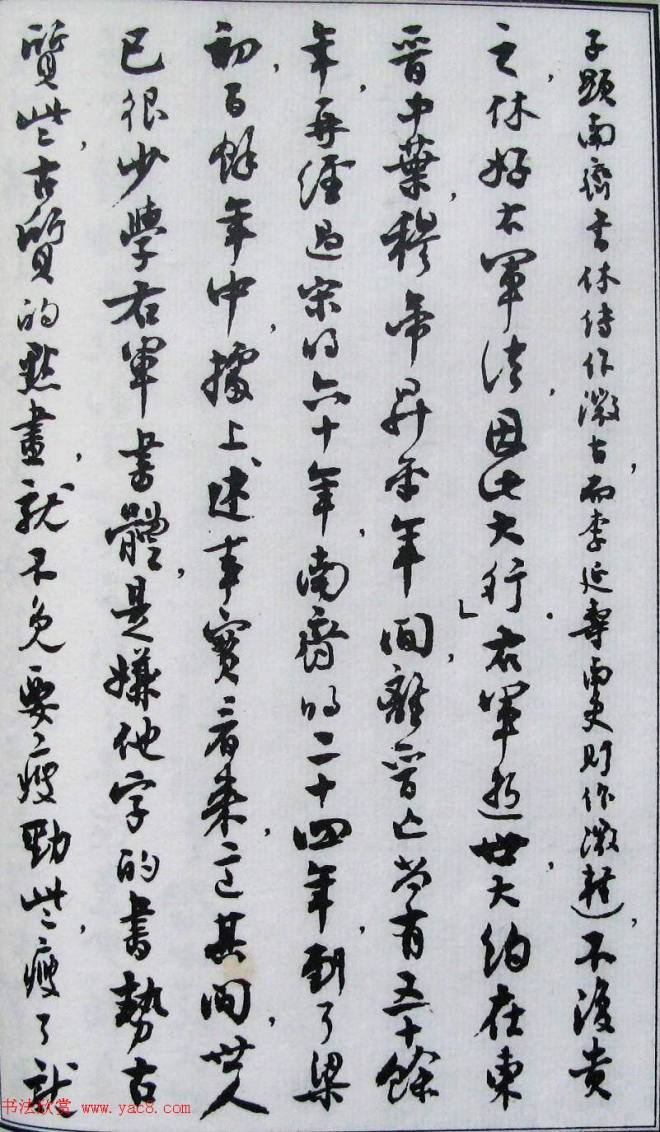 子顯南齊書休傳作微古，而李延壽南史則作微輕）不復貴
之，休好右軍法，因此大行。」右軍逝世，大約在東
晉中葉，穆帝昇平年間，離晉亡尚有五十餘
年，再經過宋的六十年，南齊的二十四年，到了梁
初，百餘年中，據上述事實看來，這其間，世人
已很少學右軍書體，是嫌他字的書勢古
質些，古質的點畫，就不免要瘦勁些，瘦了就
书法欣赏 www.yac8.com